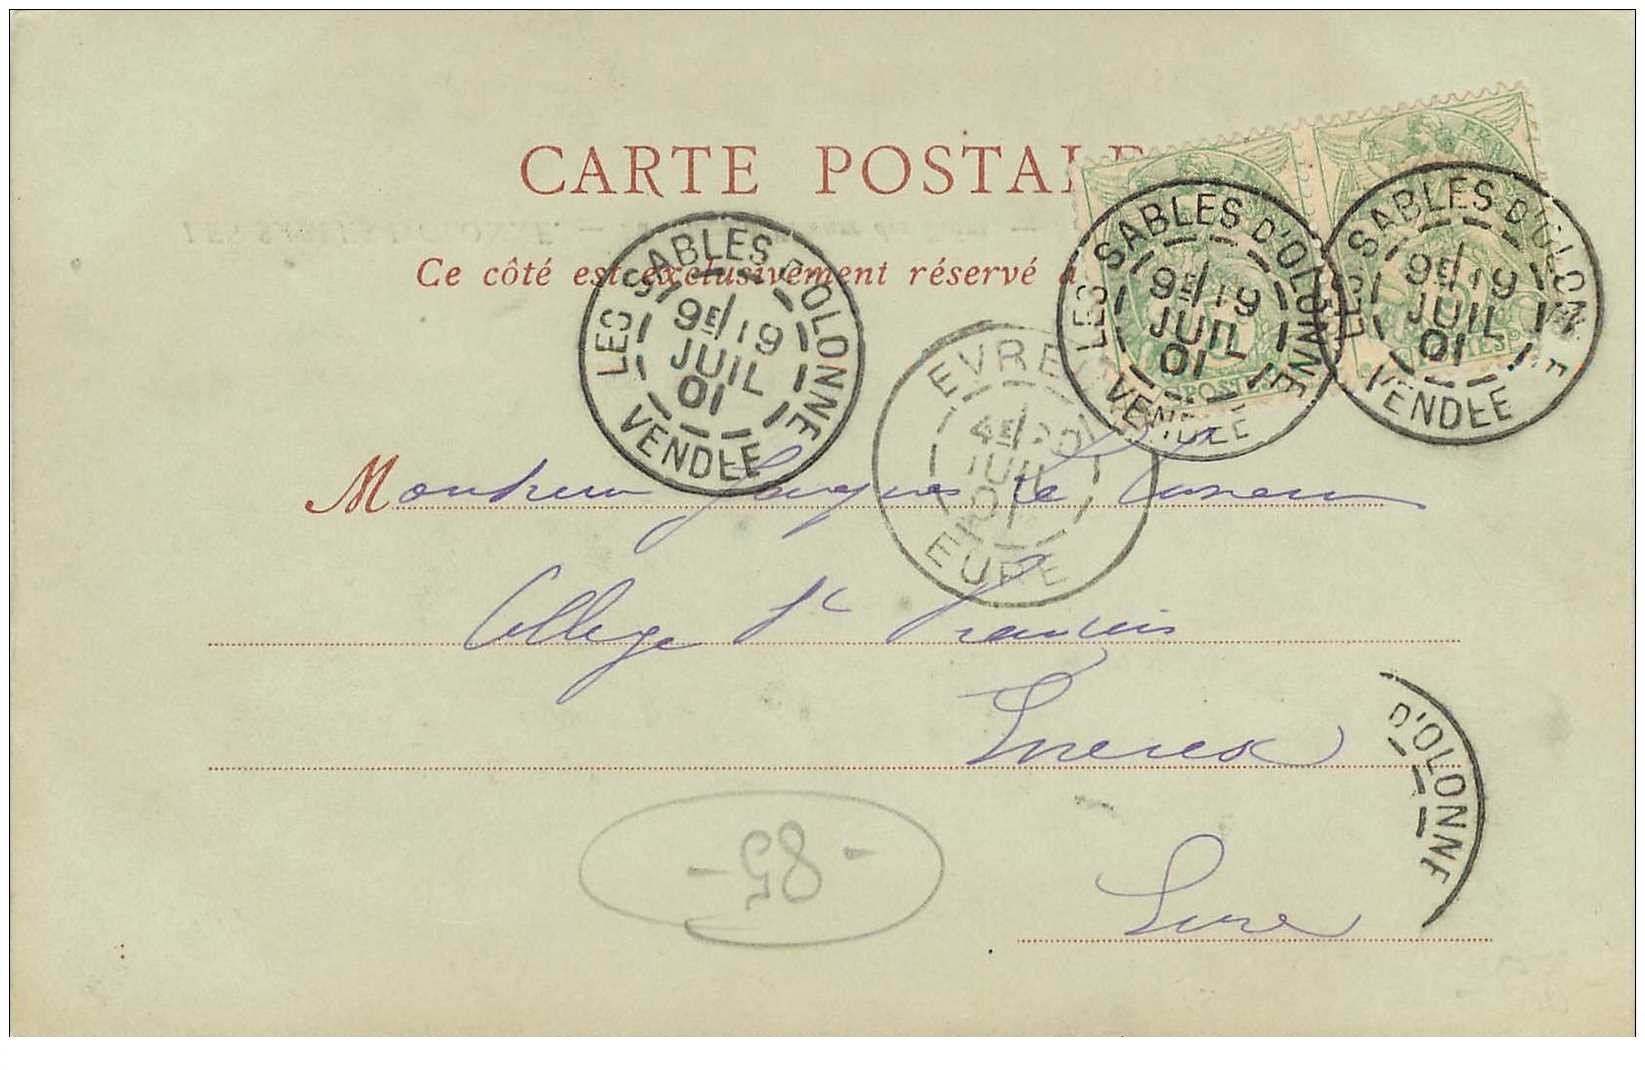 CARTE POSTALE
LES SABLES D'OLONNE. —
Ce côté est exclusivement réservé à
LES SABLES D'OLONNE
9E/19
JUIL
01
VENDÉE
LES SABLES D'OLONNE
9E/19
JUIL
01
VENDÉE
LES SABLES D'OLONNE
9E/19
JUIL
01
VENDÉE
POSTES
EVREUX
4E/20
JUIL
01
EURE
Monsieur Jacques de
College St Francois
Evreux
Eure
D'OLONNE
- 85 -